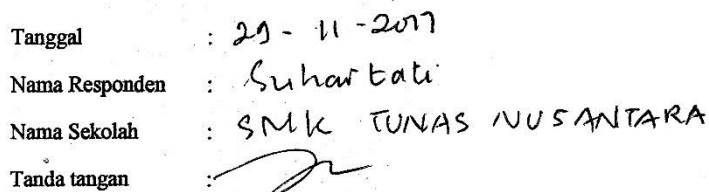 Tanggal : 29 - 11 - 2017
Nama Responden : Suhartati
Nama Sekolah : SMK TUNAS NUSANTARA
Tanda tangan :